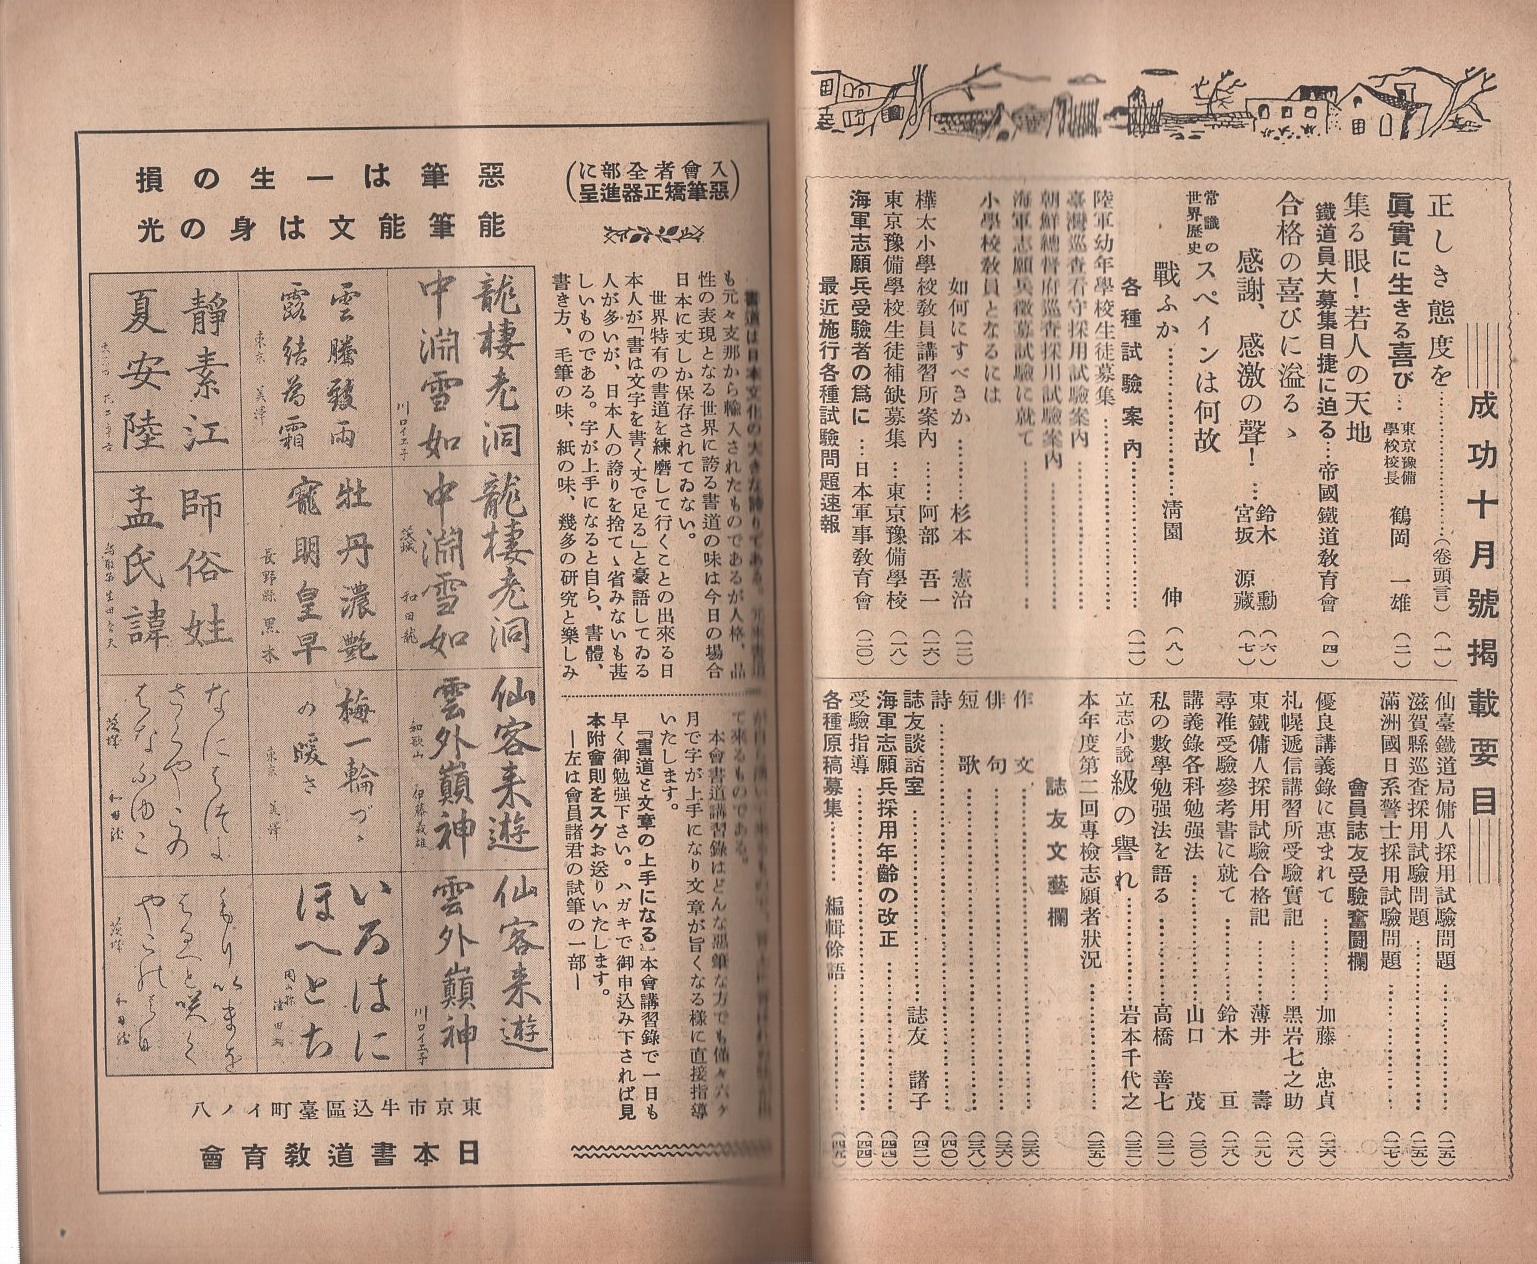 成功十月號揭載要目
正しき態度を…………(卷頭言)(一)
眞實に生きる喜び…東京豫備學校校長 鶴岡一雄(二)
集る眼!若人の天地
鐵道員大募集目捷に迫る…帝國鐵道敎育會(四)
合格の喜びに溢るゝ
感謝、感激の聲!…鈴木勳(六)
宮坂源藏(七)
常識の世界歷史
スペインは何故
戰ふか…………淸園伸(八)
各種試驗案內…………(一一)
陸軍幼年學校生徒募集…………
臺灣巡査看守採用試驗案內…………
朝鮮總督府巡査採用試驗案內…………
海軍志願兵徵募試驗に就て…………
小學校敎員となるには
如何にすべきか………杉本憲治
樺太小學校敎員講習所案內……阿部吾一(一六)
東京豫備學校生徒補缺募集…東京豫備學校(一八)
海軍志願兵受驗者の爲に…日本軍事敎育會(二〇)
最近施行各種試驗問題速報
仙臺鐵道局傭人採用試驗問題…………(二五)
滋賀縣巡査採用試驗問題…………(二五)
滿洲國日系警士採用試驗問題…………(二七)
會員誌友受驗奮鬪欄
優良講義錄に惠まれて………加藤忠貞(二六)
札幌遞信講習所受驗實記………黑岩七之助(二八)
東鐵傭人採用試驗合格記………薄井壽(二九)
尋准受驗參考書に就て………鈴木亘(二八)
講義錄各科勉强法………山口茂(三〇)
私の數學勉强法を語る………高橋善七(三一)
立志小說 級の譽れ………岩本千代之(三三)
本年度第二回專檢志願者狀況…………(三五)
誌友文藝欄
作文…………(三六)
俳句…………(三六)
短歌…………(三八)
詩…………(四〇)
誌友談話室………誌友諸子(四二)
海軍志願兵採用年齡の改正…………(四四)
受驗指導…………(四四)
各種原稿募集………編輯餘語………(四九)
入會者全部に
惡筆矯正器進呈
惡筆は一生の損
能筆能文は身の光
書道は日本文化の大きな誇りである。元來書道
も元々支那から輸入されたものであるが人格、品
性の表現となる世界に誇る書道の味は今日の場合
日本に丈しか保存されてゐない。
世界特有の書道を練磨して行くことの出來る日
本人が「書は文字を書く丈で足る」と豪語してゐる
人が多いが、日本人の誇りを捨てゝ省みないも甚
しいものである。字が上手になると自ら、書體、
書き方、毛筆の味、紙の味、幾多の硏究と樂しみ
て來るものである。
本會書道講習錄はどんな惡筆な方でも僅々六ヶ
月で字が上手になり文章が旨くなる樣に直接指導
いたします。
『書道と文章の上手になる』本會講習錄で一日も
早く御勉强下さい。ハガキで御申込み下されば見
本附會則をスグお送りいたします。
―左は會員諸君の試筆の一部―
龍棲老洞
中淵雪如
川ロイエ子
雲騰致雨
露結為霜
東京 美澤
靜素江
夏安陸
龍棲老洞
中淵雪如
茨城 和田龍
牡丹濃艷
寵明皇早
長野縣 黑木
師俗姓
孟氏諱
仙客来遊
雲外巓神
和歌山 伊藤義雄
梅一輪づゝ
の暖さ
東京 美澤
茨城 和田龍
仙客来遊
雲外巓神
川ロイエ子
いろはに
ほへとち
茨城 和田龍
東京市牛込區臺町イノ八
日本書道敎育會